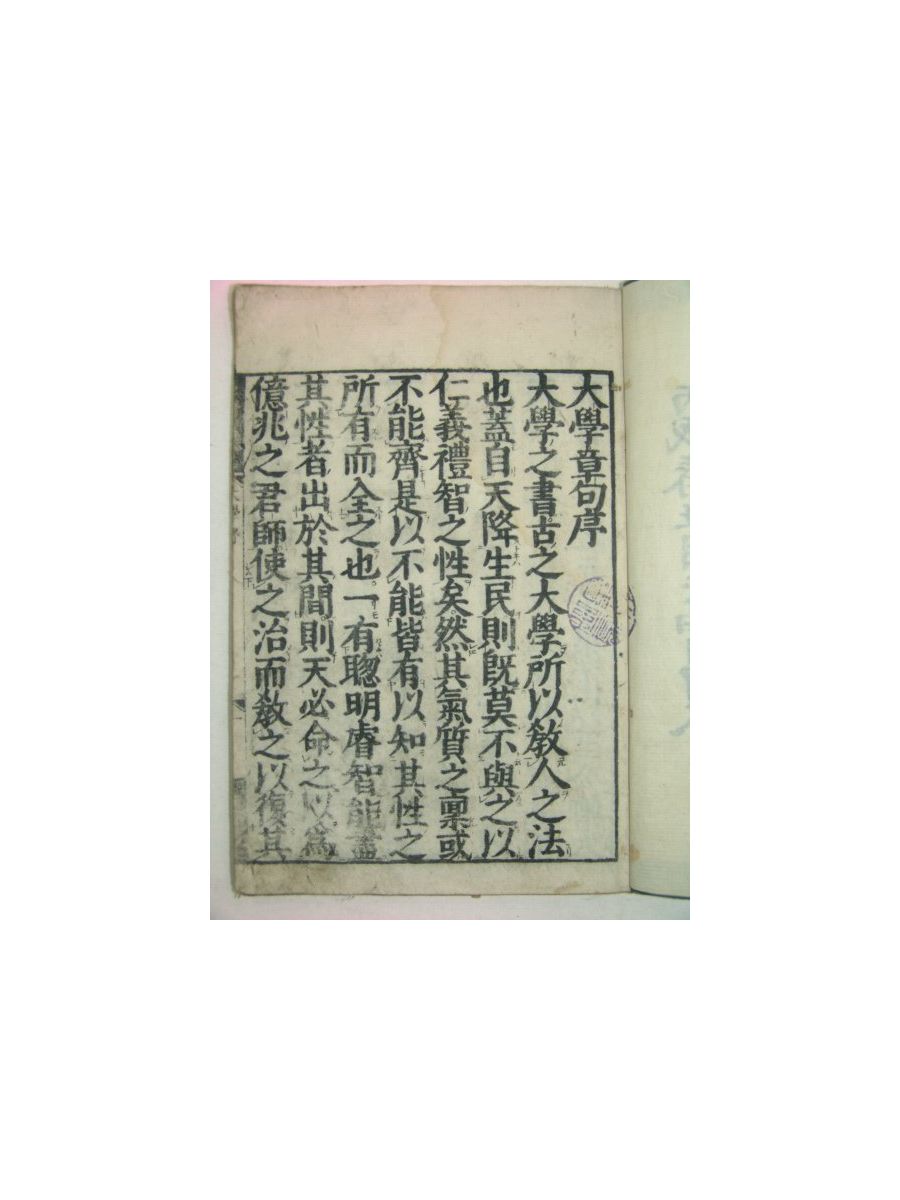 大學章句序
大學之書古之大學所以敎人之法
也蓋自天降生民則旣莫不與之以
仁義禮智之性矣然其氣質之稟或
不能齊是以不能皆有以知其性之
所有而全之也一有聰明睿智能盡
其性者出於其間則天必命之以爲
億兆之君師使之治而敎之以復其